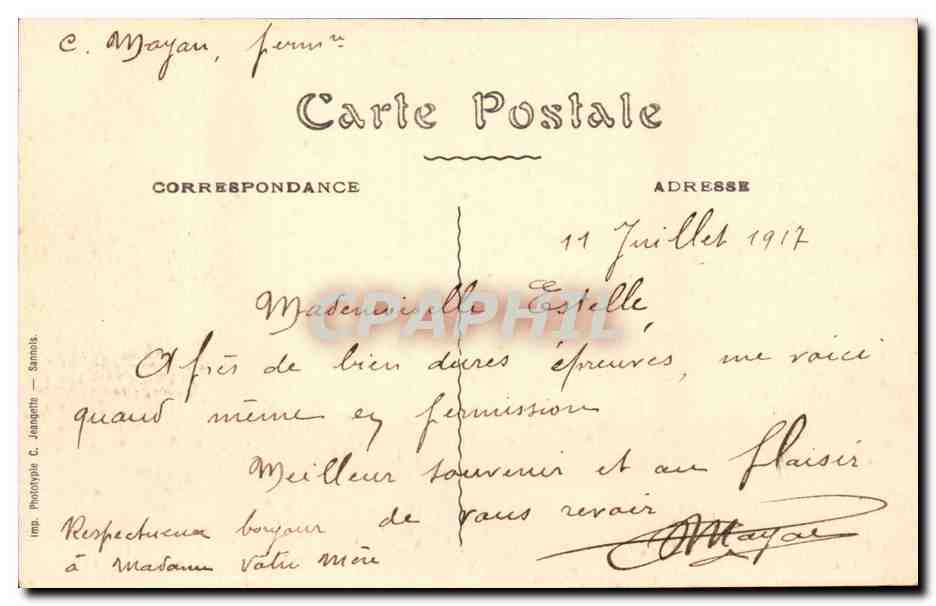 C. Mayan, permre
Carte Postale
CORRESPONDANCE
ADRESSE
11 Juillet 1917
Mademoiselle Estelle
Après de bien dures épreuves, me voici
quand même en permission
Meilleur souvenir et au plaisir
de vous revoir
CMayan
Respectueux bonjour
à Madame votre Mère
imp. Phototypie C. Jeangette — Sannois.
CPAPHIL